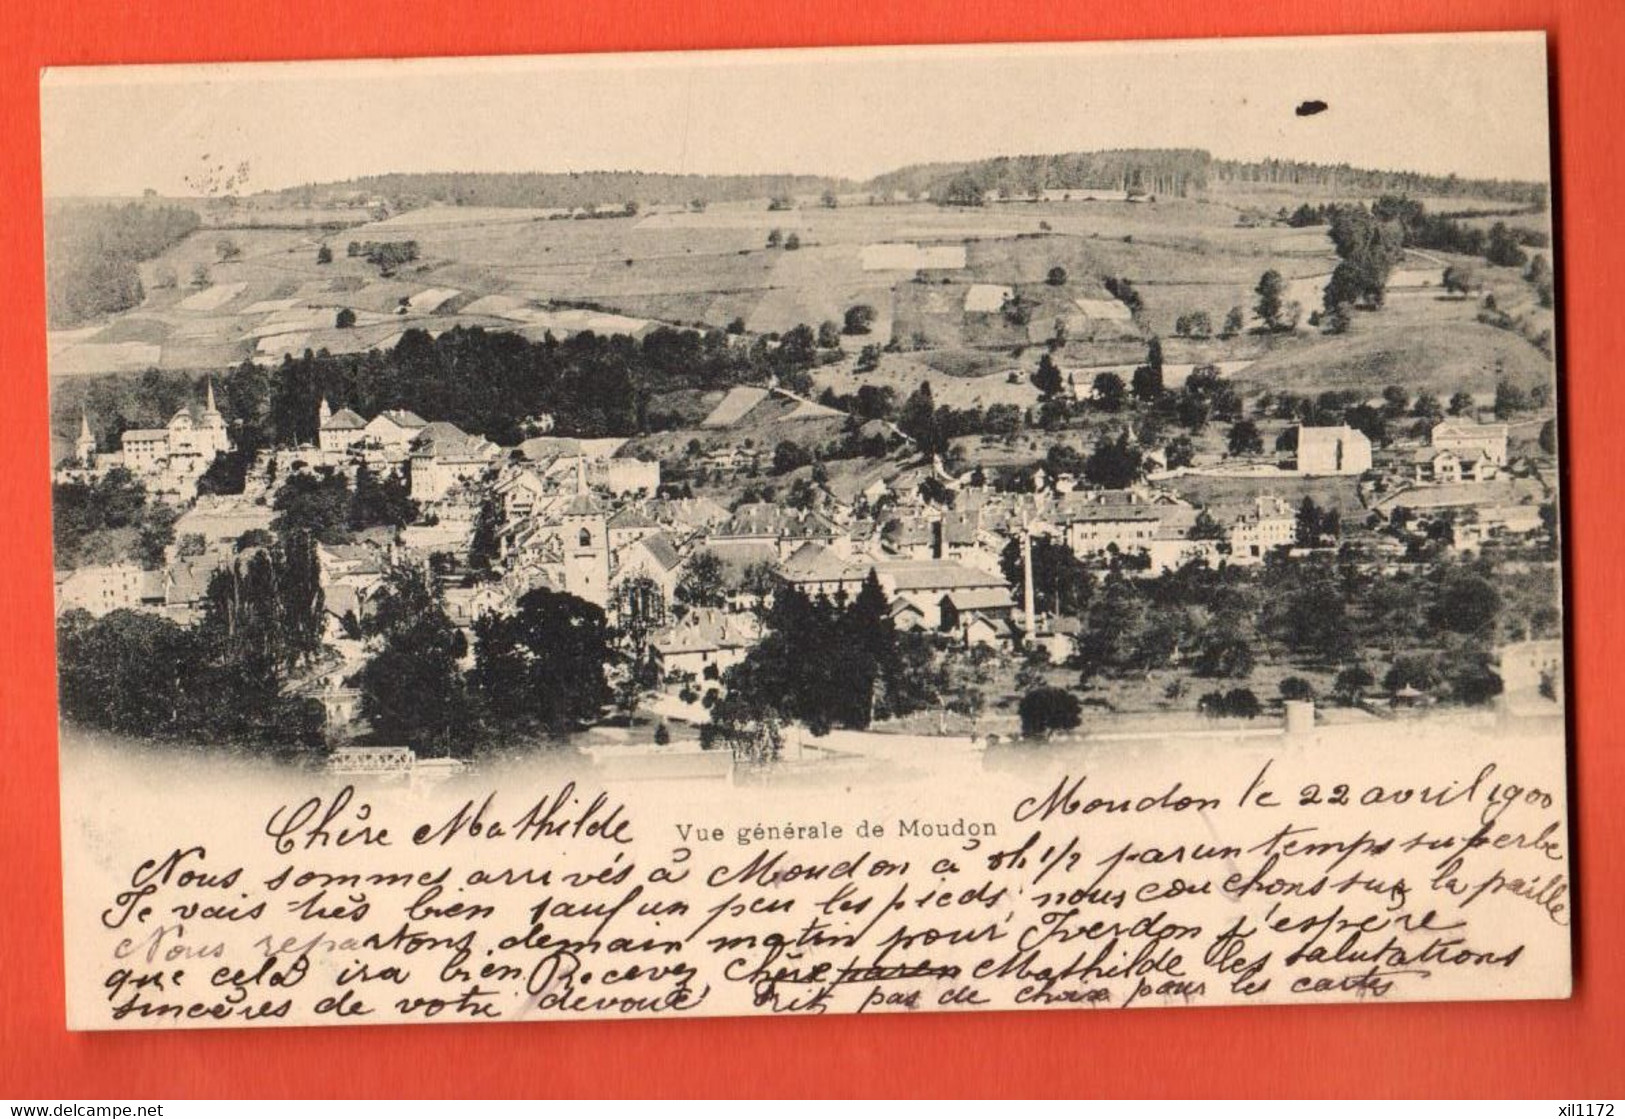 Moudon le 22 avril 1900
Chère Mathilde
Vue générale de Moudon
Nous sommes arrivés à Moudon à 8h 1/2 par un temps superbe
Je vais très bien sauf un peu les pieds, nous couchons sur la paille
Nous repartons demain matin pour Yverdon j'espère
que celà ira bien Recevez, chère Mathilde les salutations
sincères de votre dévoué Fritz pas de choix pour les cartes
www.delcampe.net
xil1172